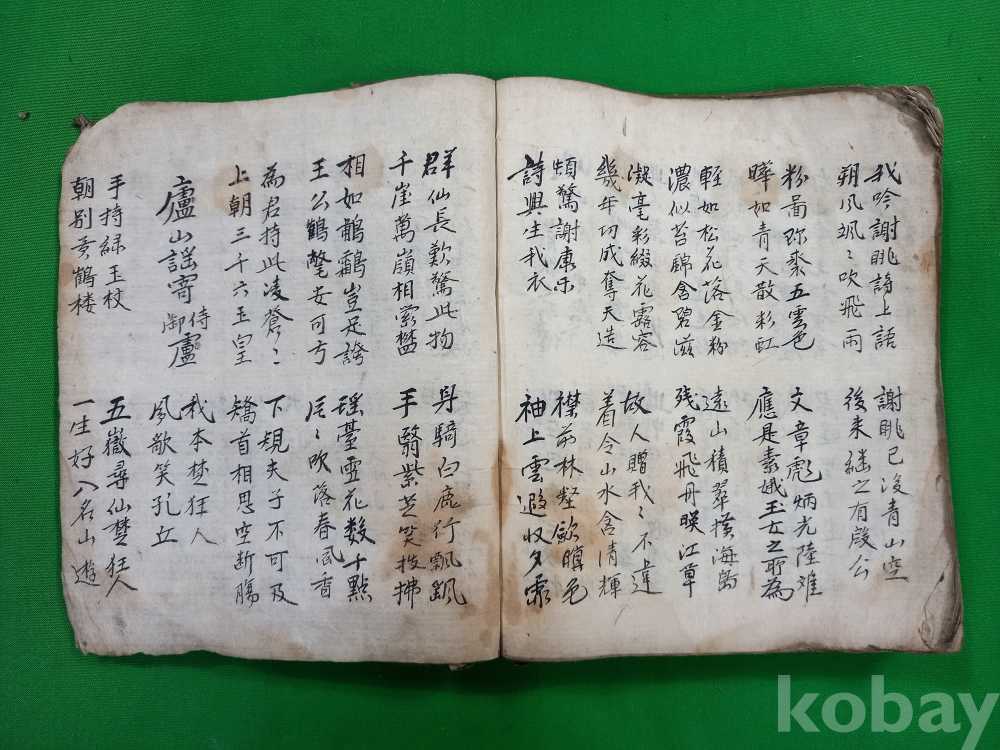 我吟謝眺詩上語
朔风颯〻吹飛雨
謝眺已没青山空
後来継之有殷公
粉啚珎裘五雲色
曄如青天散彩虹
文章彪炳光陸难
應是素娥玉女之所為
軽如松花落金粉
濃似苔錦含碧滋
遠山積翠横海島
残霞飛丹暎江草
凝毫彩綴花露容
幾年功成奪天造
故人贈我〻不違
着令山水含清輝
頓驚謝康乐
詩興生我衣
襟前林壑歛暝色
袖上雲遐收夕霏
群仙長歎驚此物
千崖萬嶺相縈欝
身騎白鹿行飄颻
手翳紫芝笑披拂
相如鷫鸘豈足誇
王公鶴氅安可方
瑶臺雪花数千點
片〻吹落春风香
為君持此凌蒼〻
上朝三十六玉皇
下規夫子不可及
矯首相思空断膓
廬山謡寄侍御廬
我本楚狂人
凤歌笑孔丘
手持緑玉杖
朝别黄鶴楼
五嶽尋仙楚狂人
一生好入名山遊